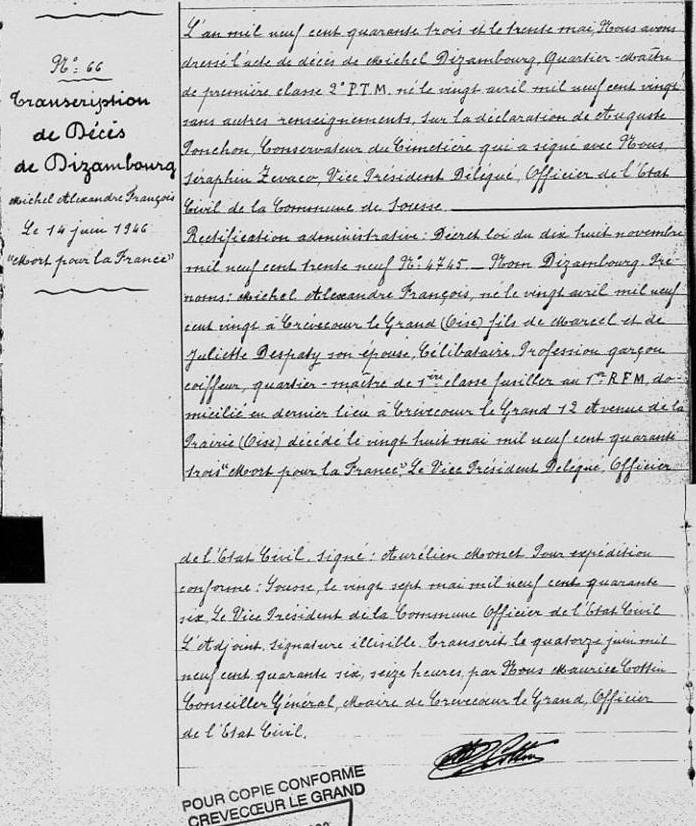 N° 66
Transcription
de Décès
de Dizambourg
Michel Alexandre François
Le 14 juin 1946
"Mort pour la France"
L'an mil neuf cent quarante trois et le trente mai, Nous avons
dressé l'acte de décès de Michel Dizambourg, Quartier-Maître
de première classe 2° P.T.M. né le vingt avril mil neuf cent vingt
sans autres renseignements, sur la déclaration de Auguste
Ponchon, Conservateur du Cimetière qui a signé avec Nous,
Séraphin Zevaco, Vice Président Délégué, Officier de l'Etat
Civil de la Commune de Sousse.
Rectification administrative: Décret loi du dix huit novembre
mil neuf cent trente neuf N° 4745 _ Nom Dizambourg. Pré-
noms: Michel Alexandre François, né le vingt avril mil neuf
cent vingt à Crèvecoeur le Grand (Oise) fils de Marcel et de
Juliette Despaty son épouse, Célibataire. Profession garçon
coiffeur, quartier-maître de 1ère classe fusilier au 1er R.F.M, do-
micilié en dernier lieu à Crèvecoeur le Grand 12 Avenue de la
Prairie (Oise) décédé le vingt huit mai mil neuf cent quarante
trois "Mort pour la France". Le Vice Président Délégué, Officier
de l'Etat Civil. signé: Aurélien Monet Pour expédition
conforme: Sousse, le vingt sept mai mil neuf cent quarante
six, Le Vice Président de la Commune Officier de l'Etat Civil
L'Adjoint. signature illisible. Transcrit le quatorze juin mil
neuf cent quarante six, seize heures, par Nous Maurice Cottin
Conseiller Général, Maire de Crèvecoeur le Grand, Officier
de l'Etat Civil.
POUR COPIE CONFORME
CREVECŒUR LE GRAND